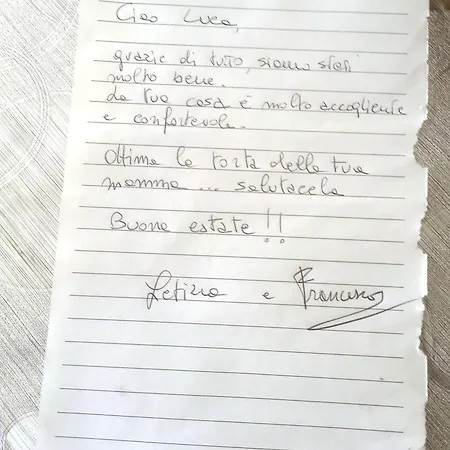 Ciao Luca,
grazie di tutto, siamo stati
molto bene.
La tua casa è molto accogliente
e confortevole.
Ottima la torta della tua
mamma ... salutacela
Buona estate!!
Letizia e Francesco